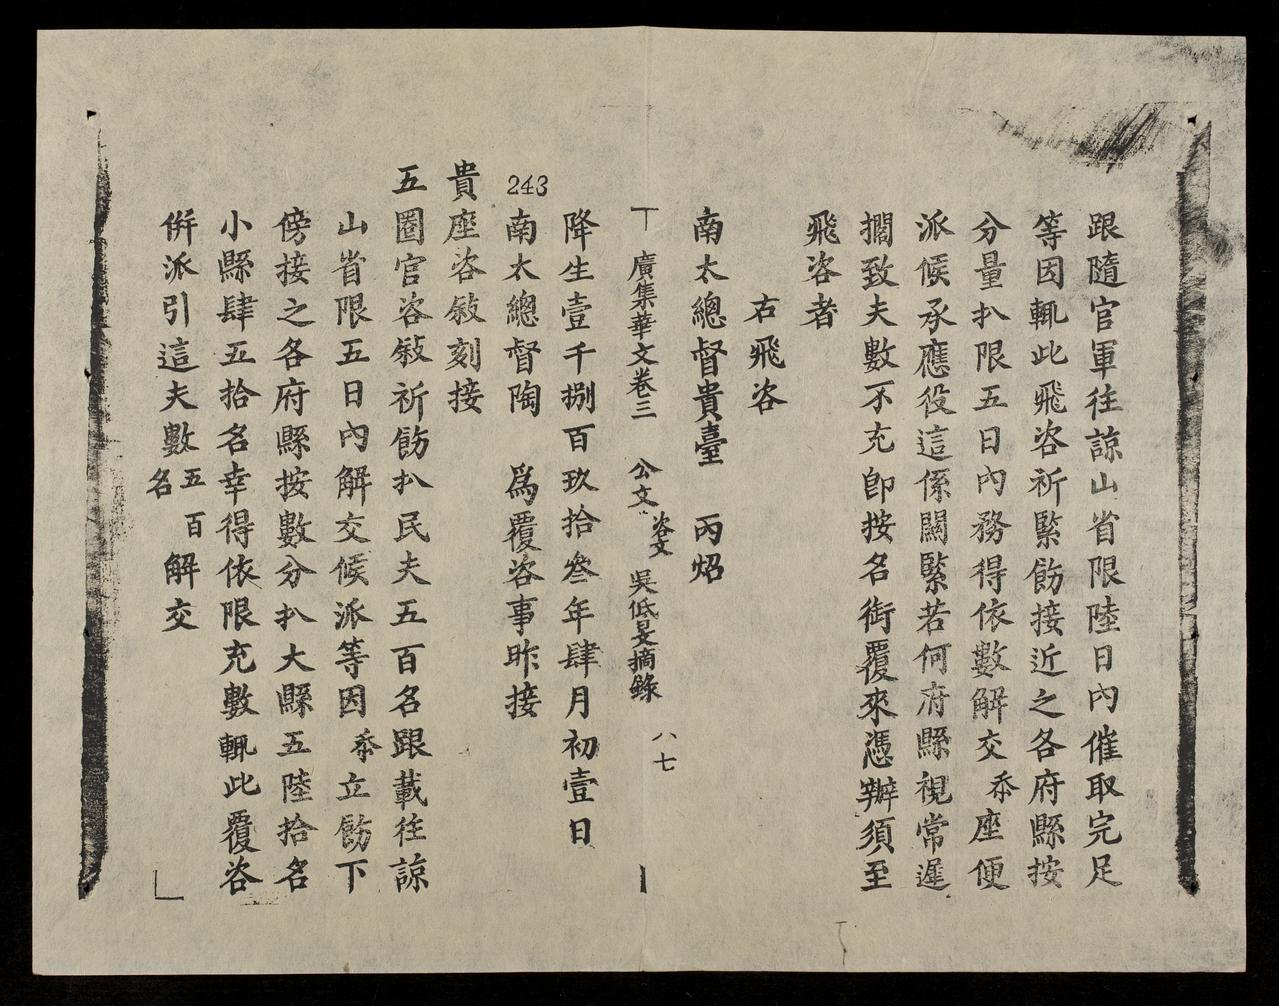 跟隨官軍往諒山省限陸日內催取完足
等因輒此飛咨祈緊飭接近之各府縣按
分量扒限五日內務得依數解交忝座便
派候承應役這係關緊若何府縣視常遲
擱致夫數不充即按名銜覆來憑辦須至
飛咨者
右飛咨
南太總督貴臺 丙炤
廣集華文卷三 公文 咨文 吳低旻摘錄 八七
降生壹千捌百玖拾叄年肆月初壹日
243
南太總督陶 爲覆咨事昨接
貴座咨敍刻接
五圈官咨敍祈飭扒民夫五百名跟載往諒
山省限五日內解交候派等因忝立飭下
傍接之各府縣按數分扒大縣五陸拾名
小縣肆五拾名幸得依限充數輒此覆咨
併派引這夫數五百名解交